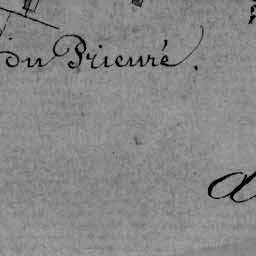 du Prieuré.